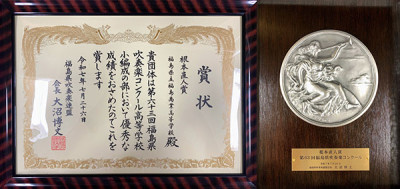 賞状
根本直人賞
福島県立福島商業高等学校 殿
貴団体は第六十三回福島県
吹奏楽コンクール高等学校
小編成の部において優秀な
成績をおさめたのでこれを
賞します
令和七年七月二十六日
福島県吹奏楽連盟
会長 大沼博文
根本直人賞
第63回福島県吹奏楽コンクール